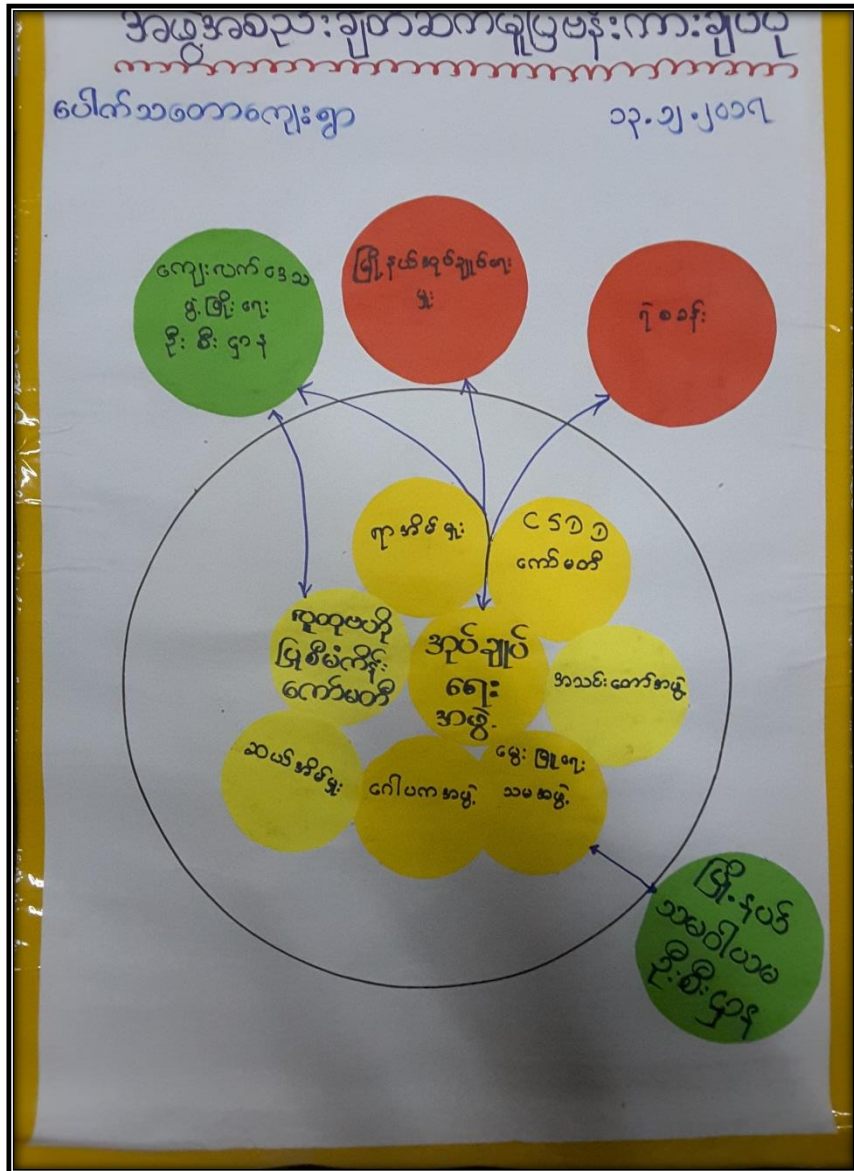 အဖွဲ့အစည်းချိတ်ဆက်မှုပြဗန်းကားချပ်ပုံ
ပေါက်သတောကျေးရွာ
၁၃.၁၂.၂၀၁၇
ကျေးလက်ဒေသ
ဖွံ့ဖြိုးရေး
ဦးစီးဌာန
မြို့နယ်အုပ်ချုပ်ရေး
မှူး
ရဲစခန်း
ရာအိမ်မှူး
CSDD
ကော်မတီ
လူထုဗဟို
ပြုစီမံကိန်း
ကော်မတီ
အုပ်ချုပ်
ရေး
အဖွဲ့
အသင်းတော်အဖွဲ့
ဆယ်အိမ်မှူး
ဂေါပကအဖွဲ့
မွေးမြူရေး
သမအဖွဲ့
မြို့နယ်
သမဝါယမ
ဦးစီးဌာန